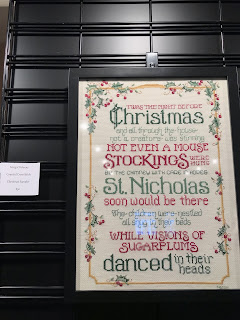 'TWAS THE NIGHT BEFORE
Christmas
and all through the house
not a creature was stirring
NOT EVEN A MOUSE
STOCKINGS WERE HUNG
BY THE CHIMNEY WITH CARE IN HOPES
St. Nicholas
soon would be there
The children were nestled
all snug in their beds
WHILE VISIONS OF
SUGARPLUMS
danced in their heads